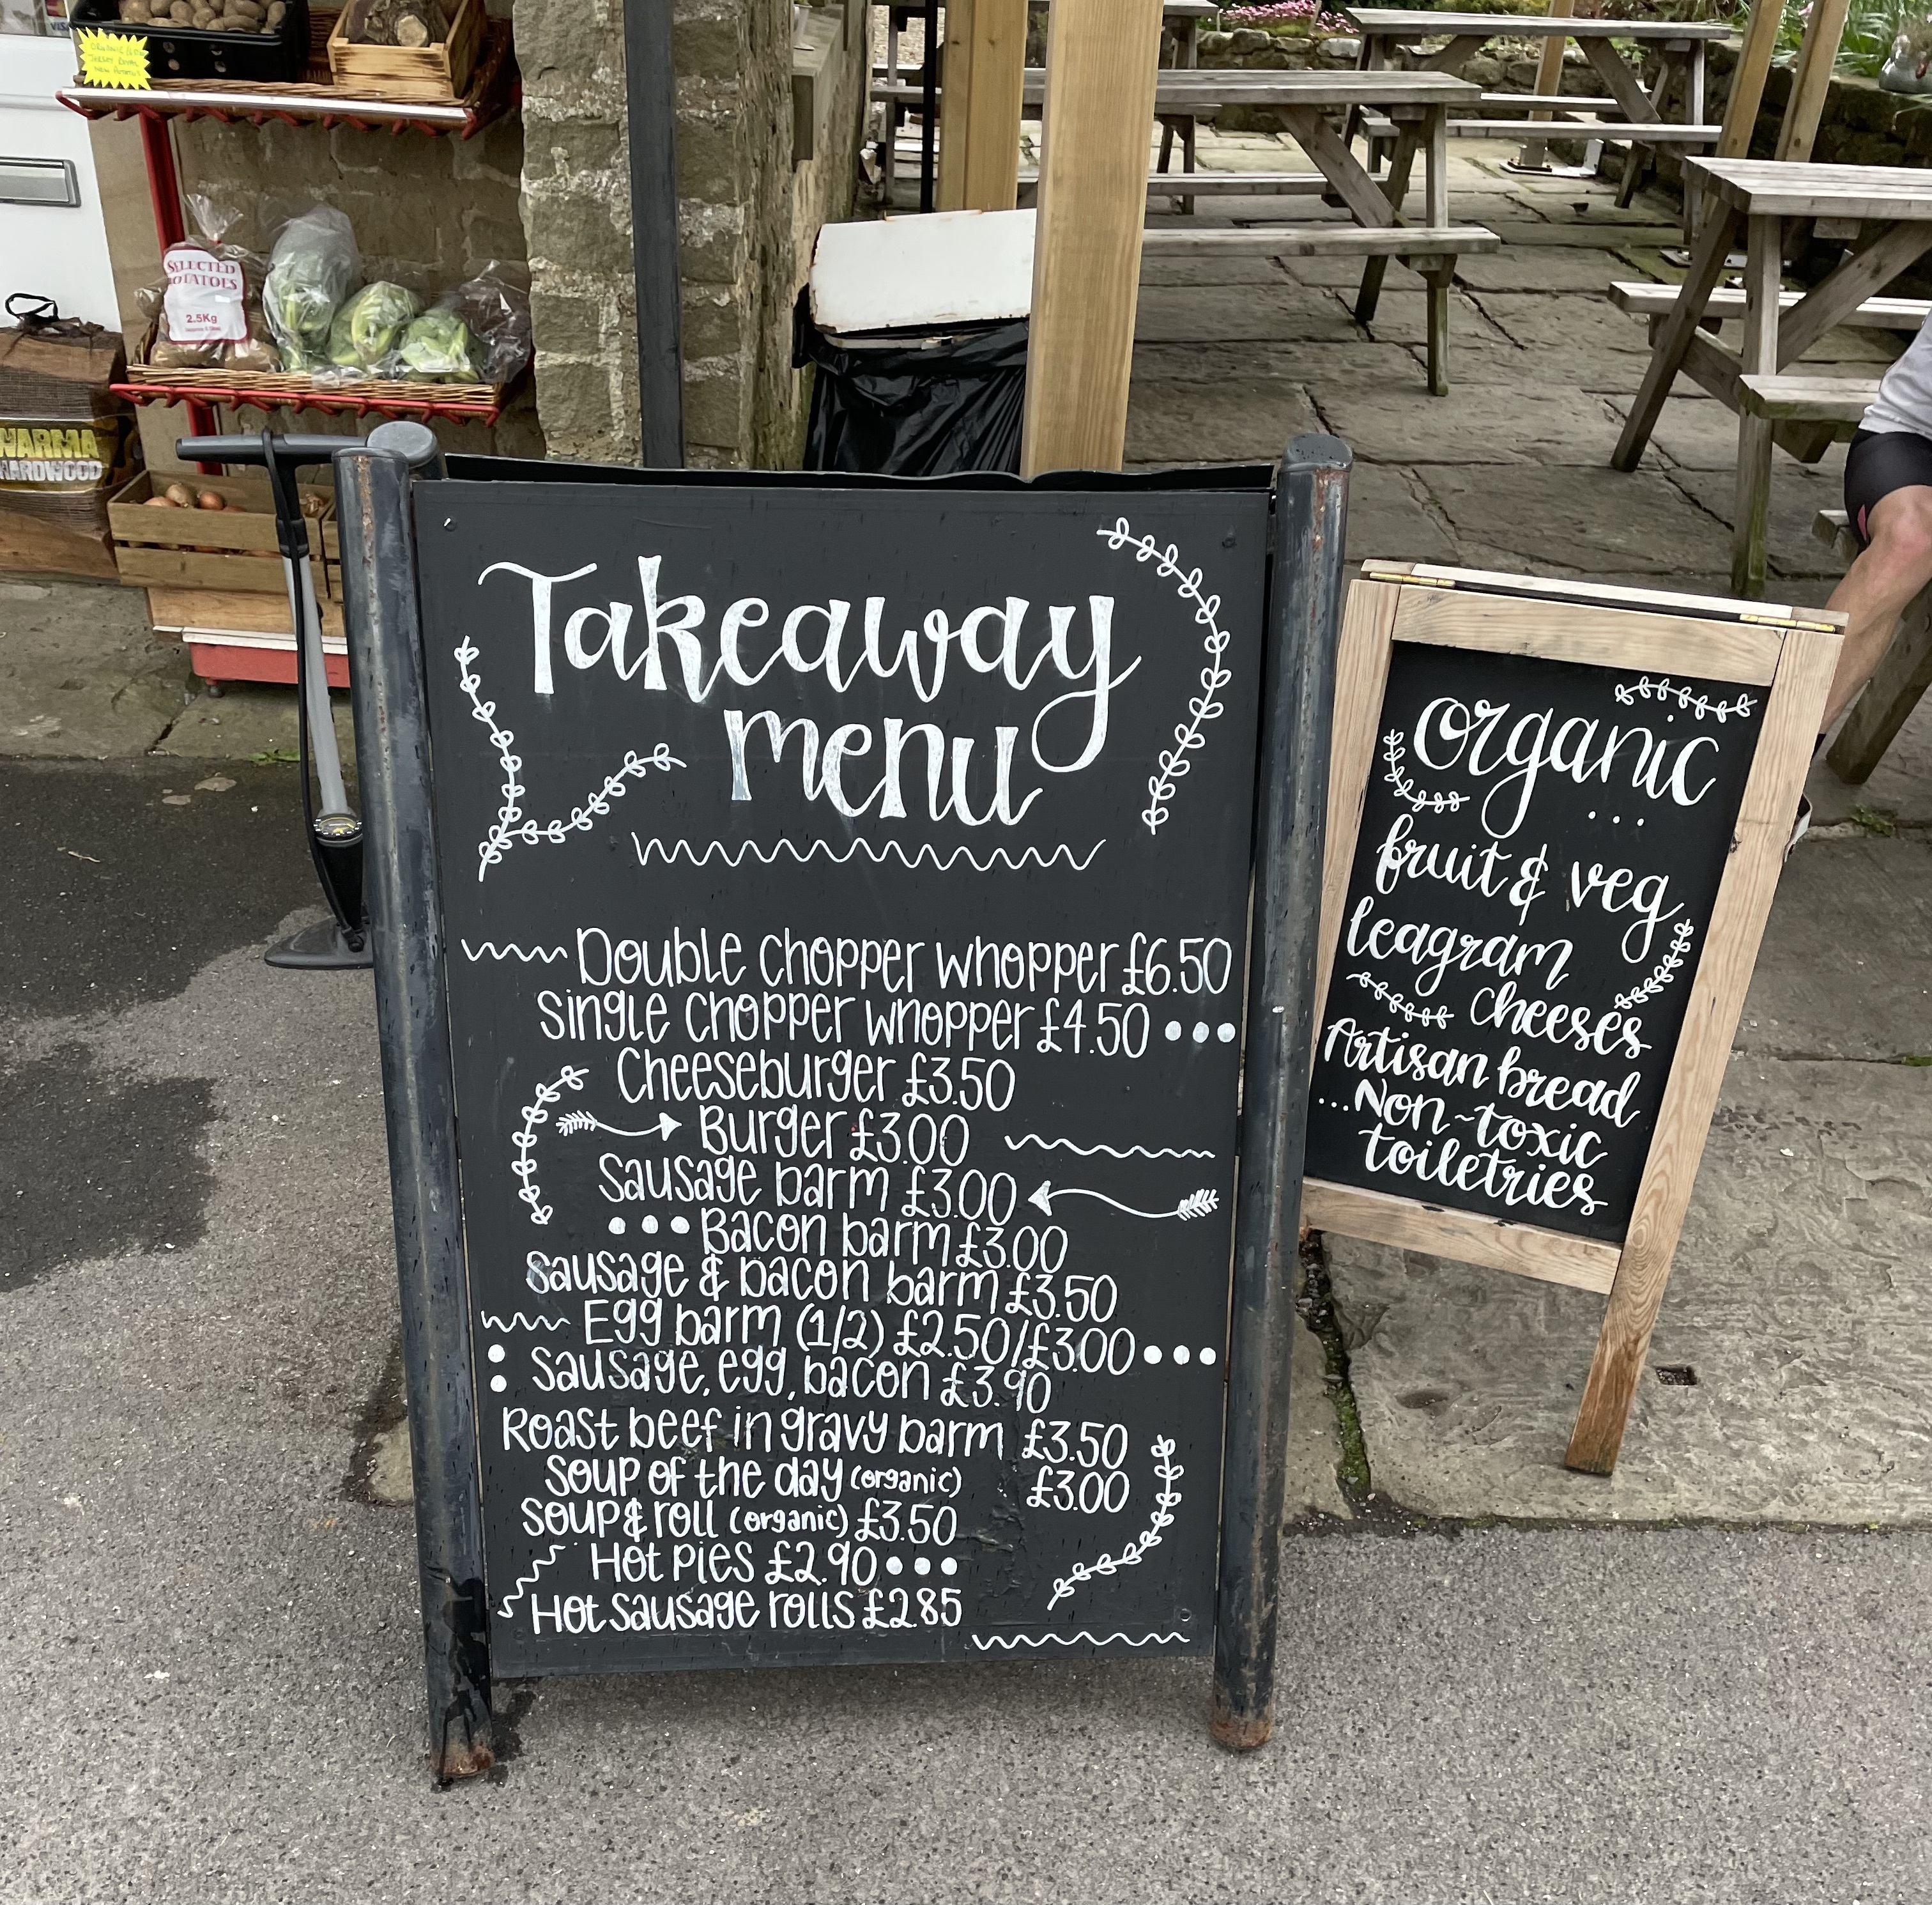 Takeaway
menu
Double chopper whopper £6.50
Single chopper whopper £4.50
Cheeseburger £3.50
Burger £3.00
Sausage barm £3.00
Bacon barm £3.00
Sausage & bacon barm £3.50
Egg barm (1/2) £2.50/£3.00
Sausage, egg, bacon £3.90
Roast beef in gravy barm £3.50
Soup of the day (organic) £3.00
Soup & roll (organic) £3.50
Hot pies £2.90
Hot sausage rolls £2.85
organic
...
fruit & veg
leagram
cheeses
Artisan bread
...Non-toxic
toiletries
SELECTED
POTATOES
2.5Kg
WARMA
HARDWOOD
VISA